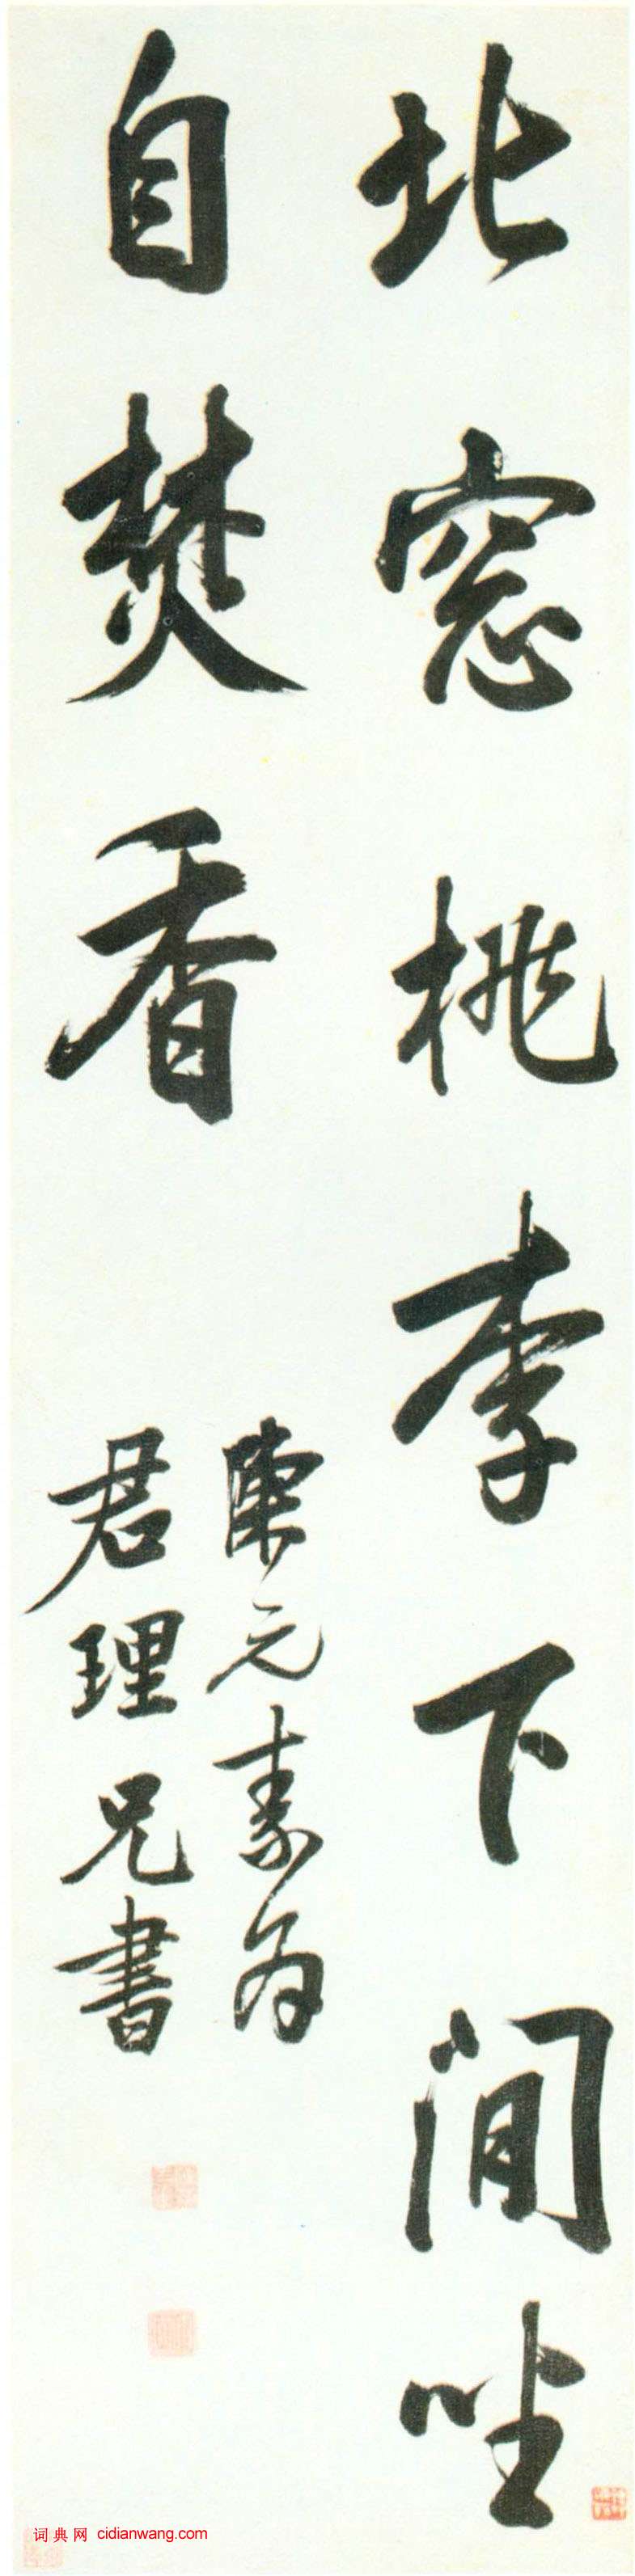 北窓桃李下閒坐
自焚香
陳元素為
君理兄書
词典网 cidianwang.com